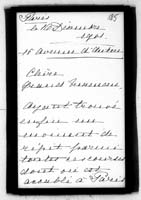 Paris
le 10 Décembre
1901.
15 Avenue d'Antin
Chère
Ayant trouvé
enfin un
moment de
répit parmi
toutes les courses
dont on est
accablé à Paris